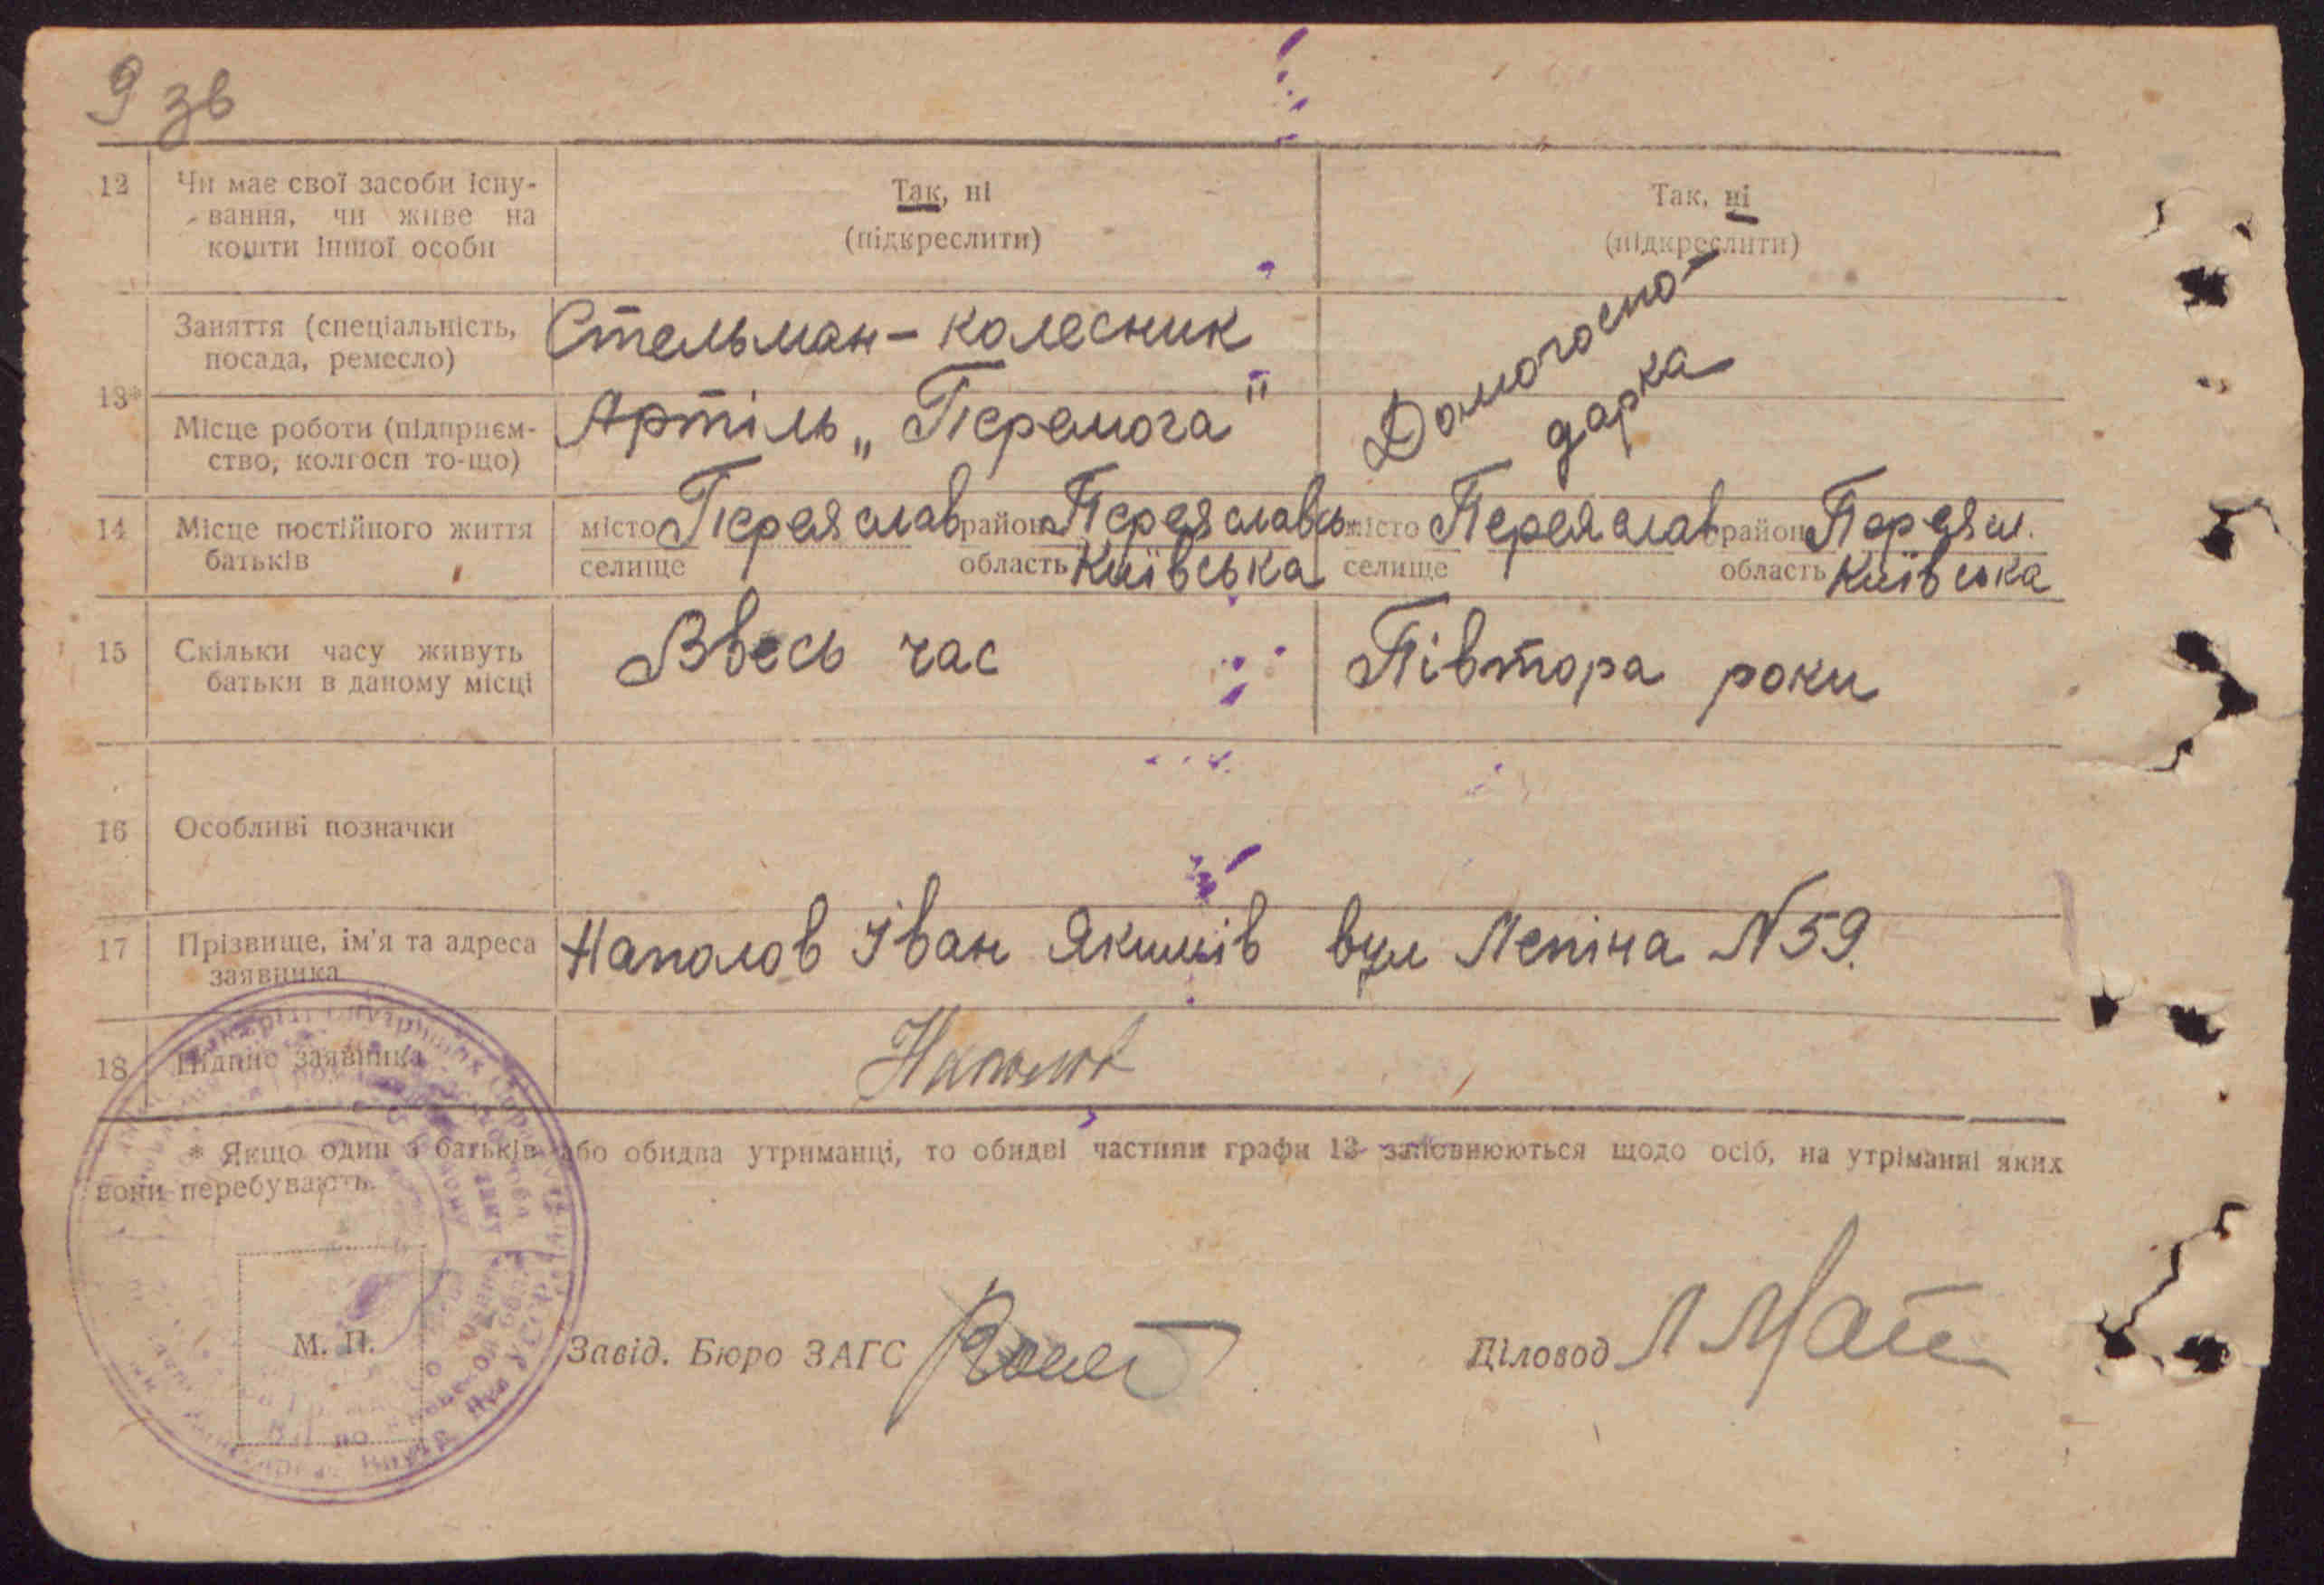 9 зв
12 Чи має свої засоби існу-
вання, чи живе на
кошти іншої особи
Так, ні
(підкреслити)
Так, ні
(підкреслити)
13*
Заняття (спеціальність,
посада, ремесло)
Стельман - колесник
Домогоспо-
дарка
Місце роботи (підприєм-
ство, колгосп то-що)
Артіль „Перемога"
14 Місце постійного життя
батьків
місто Переяслав район Переяславсь.
селище область Київська
місто Переяслав район Переясл.
селище область Київська
15 Скільки часу живуть
батьки в даному місці
Ввесь час
Півтора роки
16 Особливі позначки
17 Прізвище, ім'я та адреса
заявника
Наполов Іван Якимів вул Леніна N 59.
18 Підпис заявника
Наполов
* Якщо один з батьків або обидва утриманці, то обидві частини графи 13 заповнюються щодо осіб, на утріманні яких
вони перебувають.
М. П.
Завід. Бюро ЗАГС
Діловод